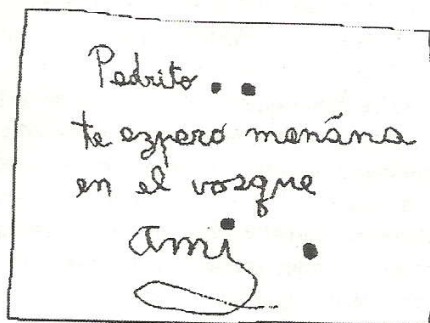 Pedrito..
te ezpero menãna
en el vozque
ami.